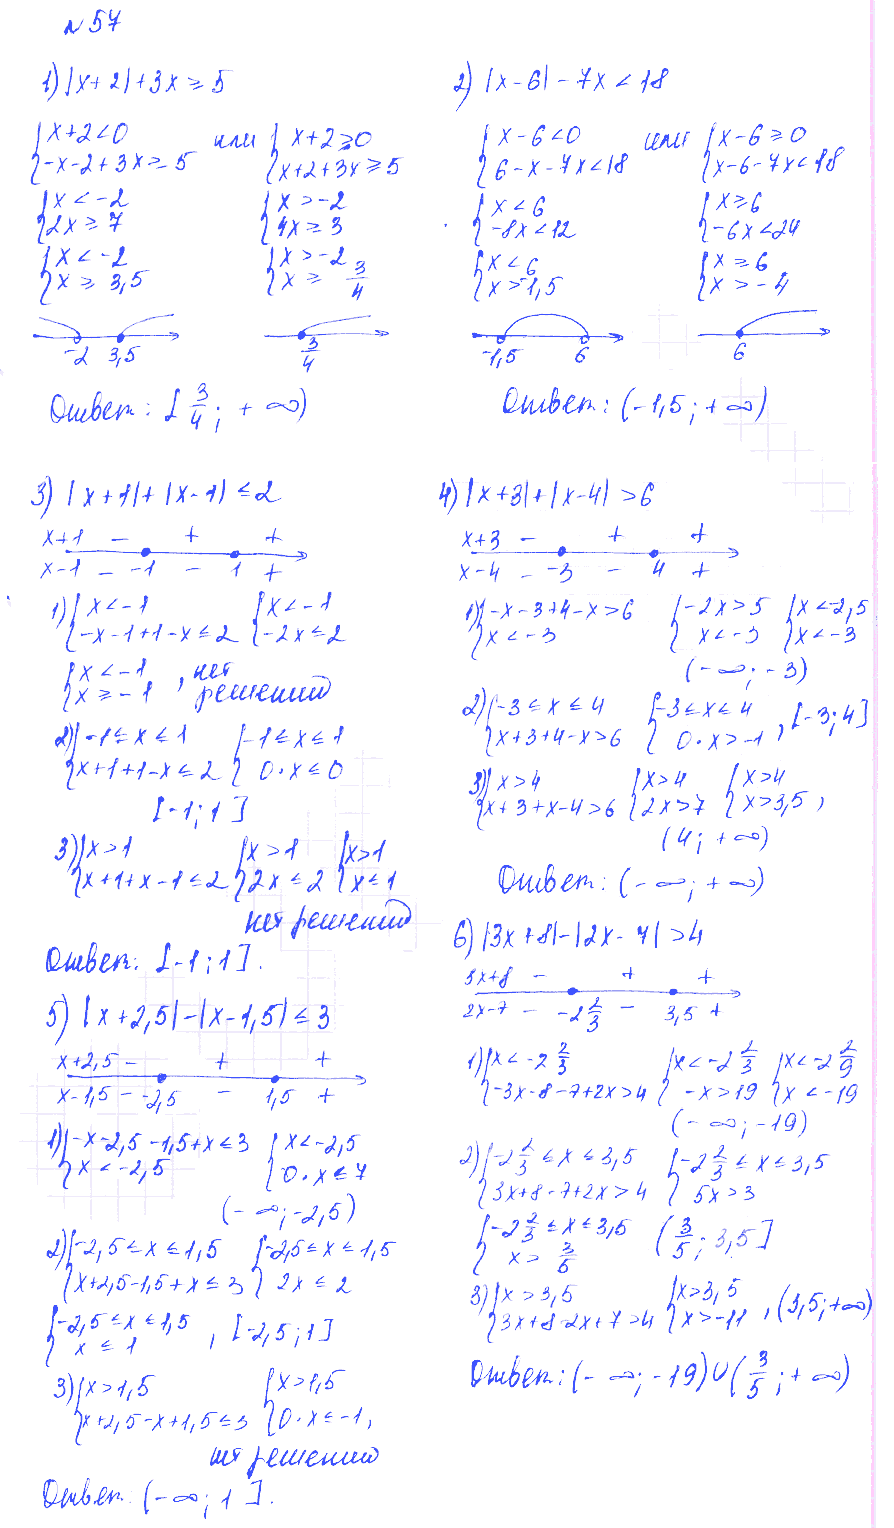 № 57
1) |x+2|+3x ≥ 5
{x+2<0
{-x-2+3x ≥ 5
или
{x+2≥0
{x+2+3x ≥ 5
{x < -2
{2x ≥ 7
{x > -2
{4x ≥ 3
{x < -2
{x ≥ 3,5
{x > -2
{x ≥ 3/4
-2 3,5
3/4
Ответ: [3/4; +∞)
2) |x-6| - 7x < 18
{x-6<0
{6-x-7x<18
или
{x-6≥0
{x-6-7x<18
{x<6
{-8x<12
{x≥6
{-6x<24
{x<6
{x>-1,5
{x≥6
{x>-4
-1,5 6
6
Ответ: (-1,5; +∞)
3) |x+1|+|x-1| ≤ 2
x+1 - + +
x-1 - -1 - 1 +
1) {x<-1
{-x-1+1-x ≤ 2
{x<-1
{-2x ≤ 2
{x<-1
{x ≥ -1
, нет
решений
2) {-1≤x≤1
{x+1+1-x ≤ 2
{-1≤x≤1
{0·x ≤ 0
[-1; 1]
3) {x>1
{x+1+x-1≤2
{x>1
{2x≤2
{x>1
{x≤1
нет решений
Ответ: [-1; 1].
4) |x+3|+|x-4| > 6
x+3 - + +
x-4 - -3 - 4 +
1) {-x-3+4-x>6
{x<-3
{-2x>5
{x<-3
{x<-2,5
{x<-3
(-∞; -3)
2) {-3≤x≤4
{x+3+4-x>6
{-3≤x≤4
{0·x>-1
, [-3; 4]
3) {x>4
{x+3+x-4>6
{x>4
{2x>7
{x>4
{x>3,5 ,
(4; +∞)
Ответ: (-∞; +∞)
5) |x+2,5|-|x-1,5| ≤ 3
x+2,5 - + +
x-1,5 - -2,5 - 1,5 +
1) {-x-2,5-1,5+x≤3
{x<-2,5
{x<-2,5
{0·x≤7
(-∞; -2,5)
2) {-2,5≤x≤1,5
{x+2,5-1,5+x≤3
{-2,5≤x≤1,5
{2x≤2
{-2,5≤x≤1,5
{x≤1
, [-2,5; 1]
3) {x>1,5
{x+2,5-x+1,5≤3
{x>1,5
{0·x≤-1,
нет решений
Ответ: (-∞; 1].
6) |3x+8|-|2x-7| > 4
3x+8 - + +
2x-7 - -2 2/3 - 3,5 +
1) {x<-2 2/3
{-3x-8-7+2x>4
{x<-2 2/3
{-x>19
{x<-2 2/9
{x<-19
(-∞; -19)
2) {-2 2/3≤x≤3,5
{3x+8-7+2x>4
{-2 2/3≤x≤3,5
{5x>3
{-2 2/3≤x≤3,5
{x>3/5
(3/5; 3,5]
3) {x>3,5
{3x+8-2x+7>4
{x>3,5
{x>-11
, (3,5; +∞)
Ответ: (-∞; -19)∪(3/5; +∞)